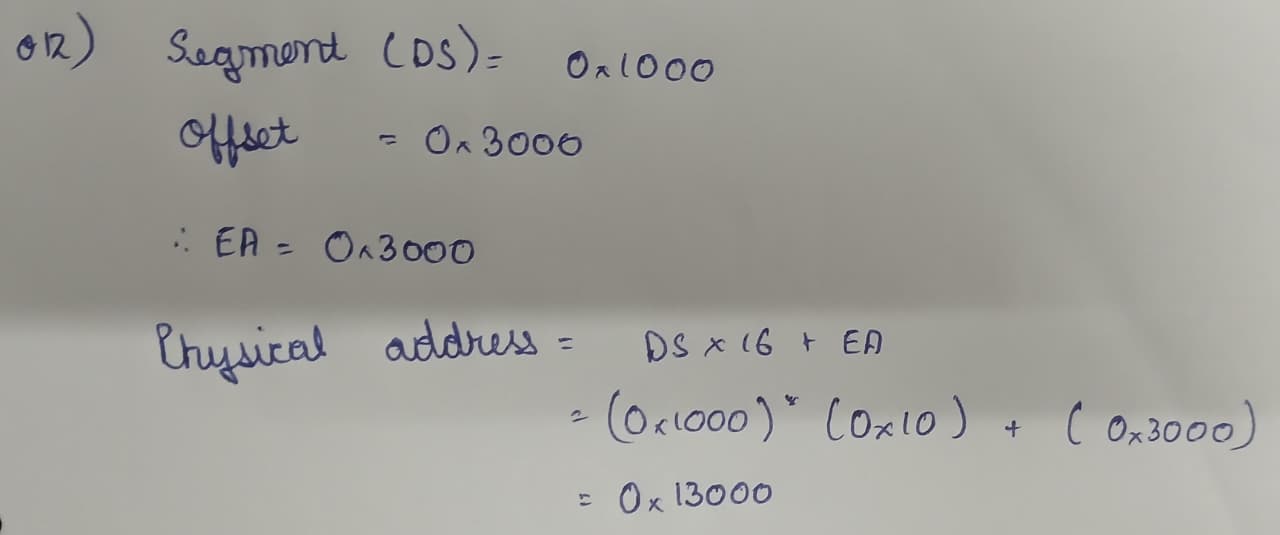 012) Segment (DS) = 0x1000
Offset = 0x3000
∴ EA = 0x3000
Physical address = DS × 16 + EA
= (0x1000) * (0x10) + (0x3000)
= 0x13000